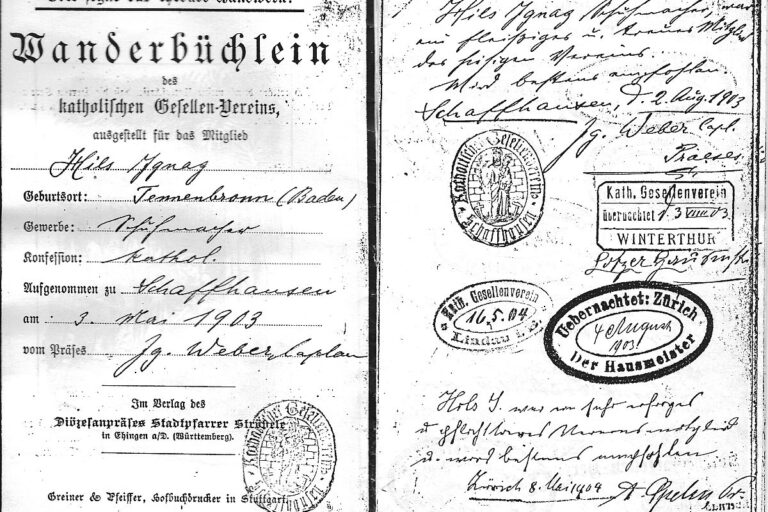 Wanderbüchlein
des
katholischen Gesellen-Vereins,
ausgestellt für das Mitglied
Hils Ignaz
Geburtsort: Tennenbronn (Baden)
Gewerbe: Schuhmacher
Konfession: kathol.
Aufgenommen zu Schaffhausen
am 3. Mai 1903
vom Präses Jg. Weber, Caplan
Im Verlag des
Diözesanpräses Stadtpfarrer Strobele
in Ehingen a/D. (Württemberg).
Greiner & Pfeiffer, Hofbuchdrucker in Stuttgart.
Hils Ignaz Schuhmacher, war
ein fleißiges u. treues Mitglied
des hiesigen Vereins.
Wird bestens empfohlen.
Schaffhausen, d. 2. Aug. 1903
Jg. Weber, Capl.
Praeses
Katholischer Gesellenverein
Schaffhausen
Kath. Gesellenverein
übernachtet 1 3 VIII 03
WINTERTHUR
Kath. Gesellenverein
16. 5. 04
Lindau
Uebernachtet: Zürich
4 August
1903
Der Hausmeister
u. wird bestens empfohlen
Zürich 8. Mai 1904